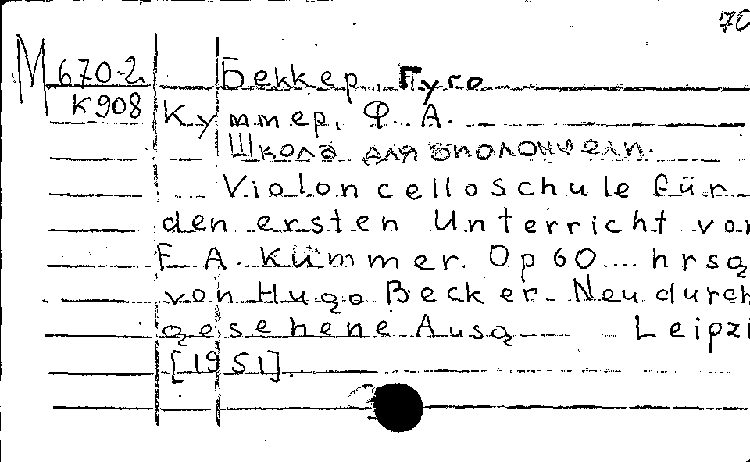 70
М 670-2 Беккер, Гуго
К 908 Куммер, Ф. А.
Школа для виолончели.
Violoncelloschule für
den ersten Unterricht von
F. A. Kümmer. Op 60 hrsg
von Hugo Becker. Neu durch
gesehene Ausg Leipzi
[1951].